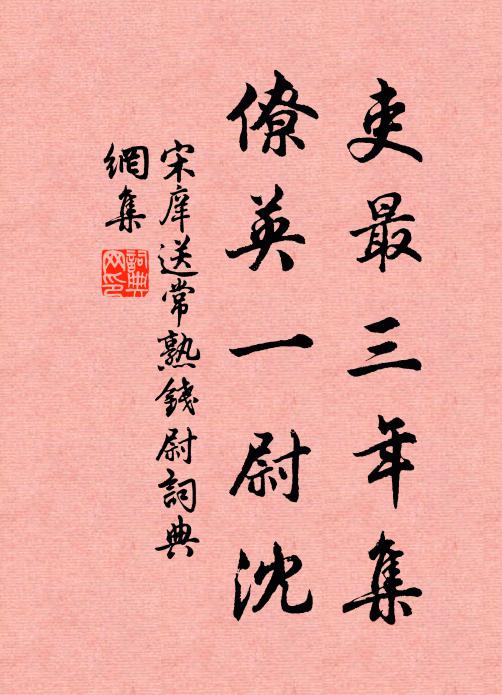 吏最三年集
僚英一尉沈
宋庠送常熟錢尉詞典
網集
詞典
网印